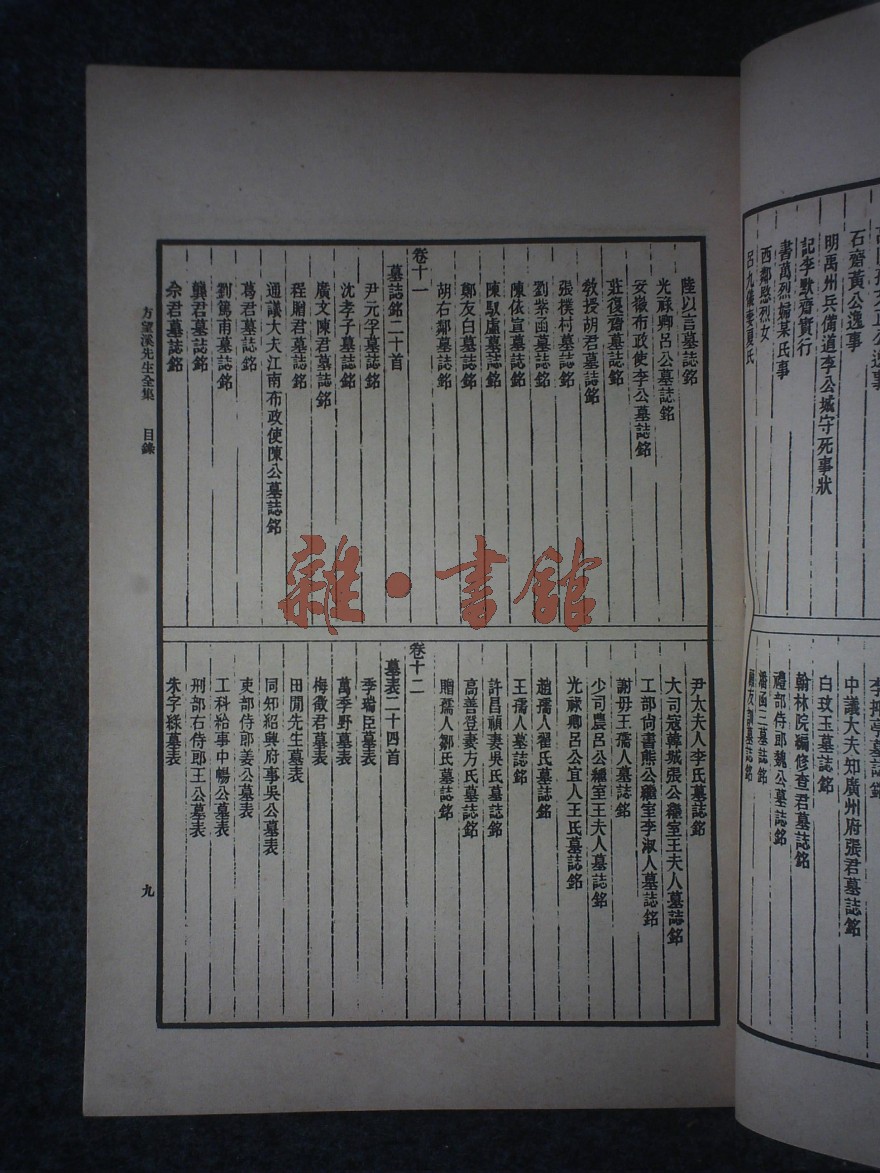 石齋黃公逸事
明禹州兵備道李公城守死事狀
記李默齋實行
書萬烈婦某氏事
西鄰愍烈女
呂九儀妻夏氏
中議大夫知廣州府張君墓誌銘
白玟玉墓誌銘
翰林院編修查君墓誌銘
禮部侍郎魏公墓誌銘
潘函三墓誌銘
陸以言墓誌銘
光祿卿呂公墓誌銘
安徽布政使李公墓誌銘
莊復齋墓誌銘
教授胡君墓誌銘
張樸村墓誌銘
劉紫函墓誌銘
陳依宣墓誌銘
陳馭虛墓誌銘
鄭友白墓誌銘
胡右鄰墓誌銘
卷十一
墓誌銘二十首
尹元孚墓誌銘
沈孝子墓誌銘
廣文陳君墓誌銘
程贈君墓誌銘
通議大夫江南布政使陳公墓誌銘
葛君墓誌銘
劉篤甫墓誌銘
龔君墓誌銘
余君墓誌銘
尹太夫人李氏墓誌銘
大司寇韓城張公繼室王夫人墓誌銘
工部尚書熊公繼室李淑人墓誌銘
謝母王孺人墓誌銘
少司農呂公繼室王夫人墓誌銘
光祿卿呂公宜人王氏墓誌銘
趙孺人翟氏墓誌銘
王孺人墓誌銘
許昌禎妻吳氏墓誌銘
高善登妻方氏墓誌銘
贈孺人鄒氏墓誌銘
卷十二
墓表二十四首
季瑞臣墓表
萬季野墓表
梅徵君墓表
田間先生墓表
同知紹興府事吳公墓表
吏部侍郎姜公墓表
工科給事中暢公墓表
刑部右侍郎王公墓表
朱字綠墓表
方望溪先生全集 目錄
九
雜·書館